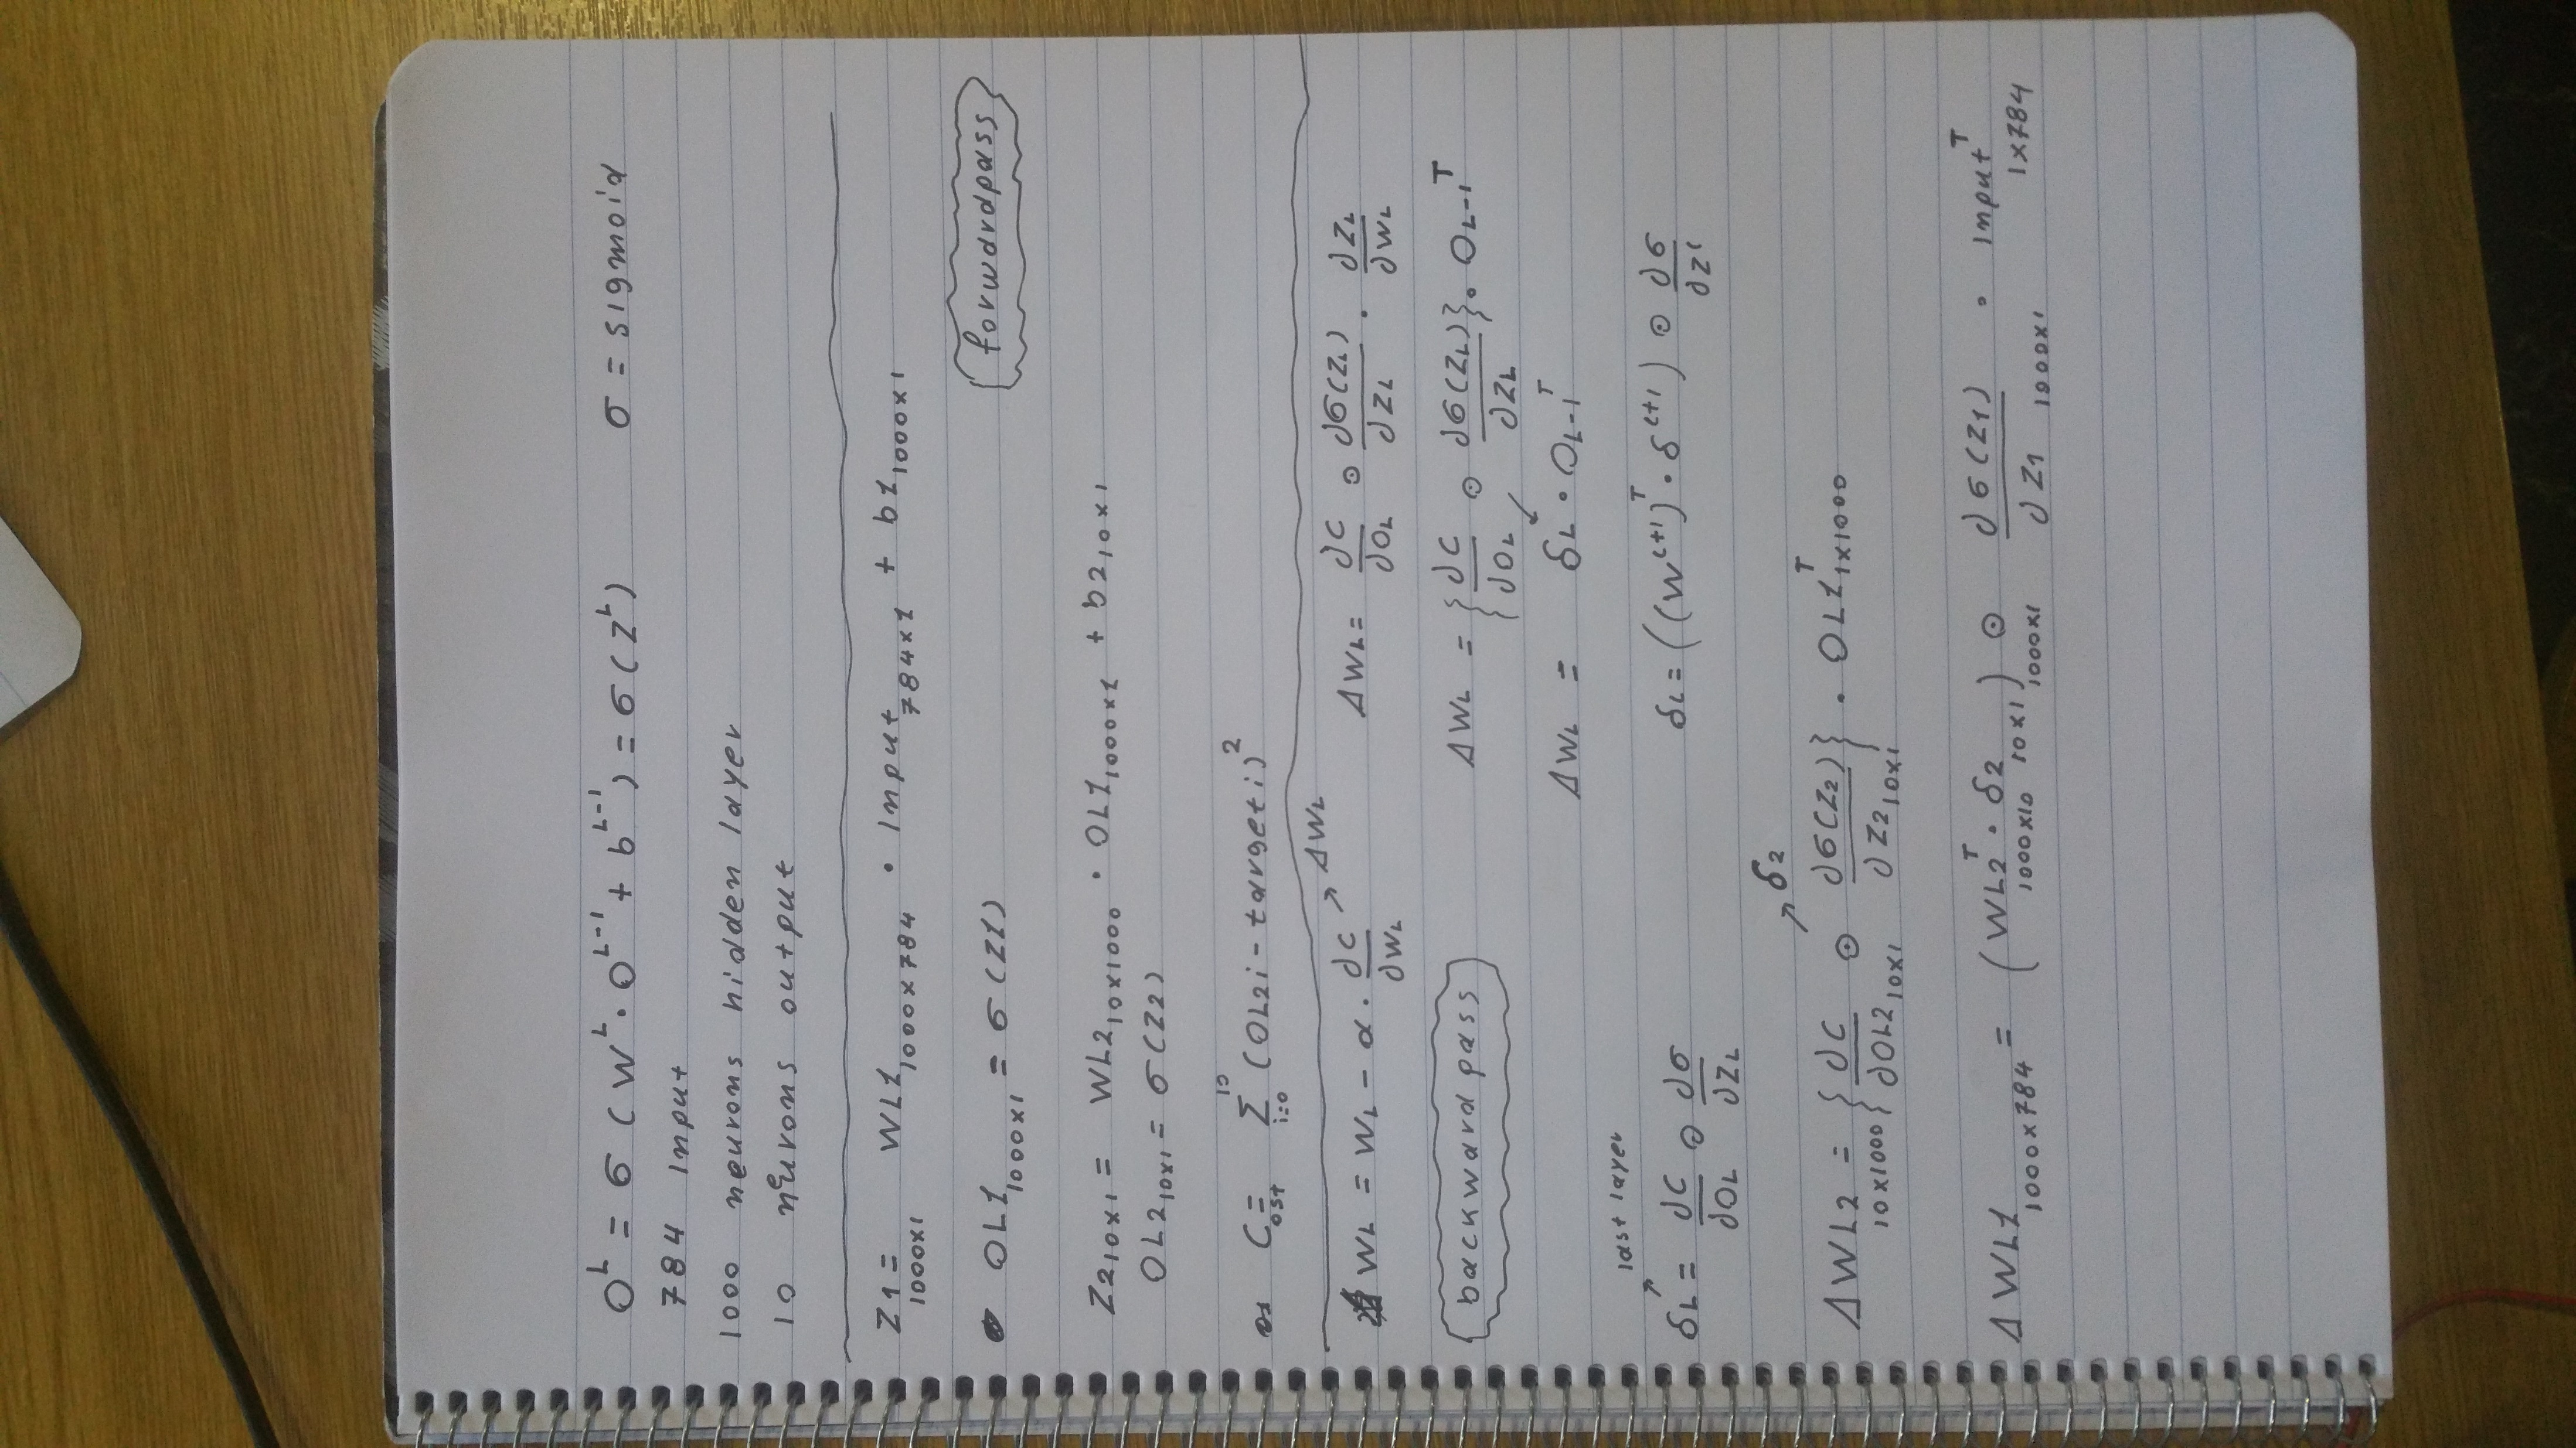 O^L = σ(W^L · O^L-1 + b^L-1) = σ(Z^L)   σ = sigmoid
784 input
1000 neurons hidden layer
10 neurons output
Z1 1000x1 = WL1 1000x784 · input 784x1 + b1 1000x1
OL1 1000x1 = σ(Z1)
forwardpass
Z2 10x1 = WL2 10x1000 · OL1 1000x1 + b2 10x1
OL2 10x1 = σ(Z2)
Cost = Σ i=0 10 (OL2i - targeti)^2
WL = WL - α · ∂C/∂WL → ΔWL   ΔWL = ∂C/∂OL ⊙ ∂σ(ZL)/∂ZL · ∂ZL/∂WL
backward pass   ΔWL = {∂C/∂OL ⊙ ∂σ(ZL)/∂ZL} · OL-1^T
ΔWL = δL · OL-1^T
last layer
δL = ∂C/∂OL ⊙ ∂σ/∂ZL   δL = ((W^L+1)^T · δ^L+1) ⊙ ∂σ/∂Z^L
δ2
ΔWL2 10x1000 = {∂C/∂OL2 10x1 ⊙ ∂σ(Z2)/∂Z2 10x1} · OL1^T 1x1000
ΔWL1 1000x784 = (WL2^T 1000x10 · δ2 10x1) 1000x1 ⊙ ∂σ(Z1)/∂Z1 1000x1 · input^T 1x784